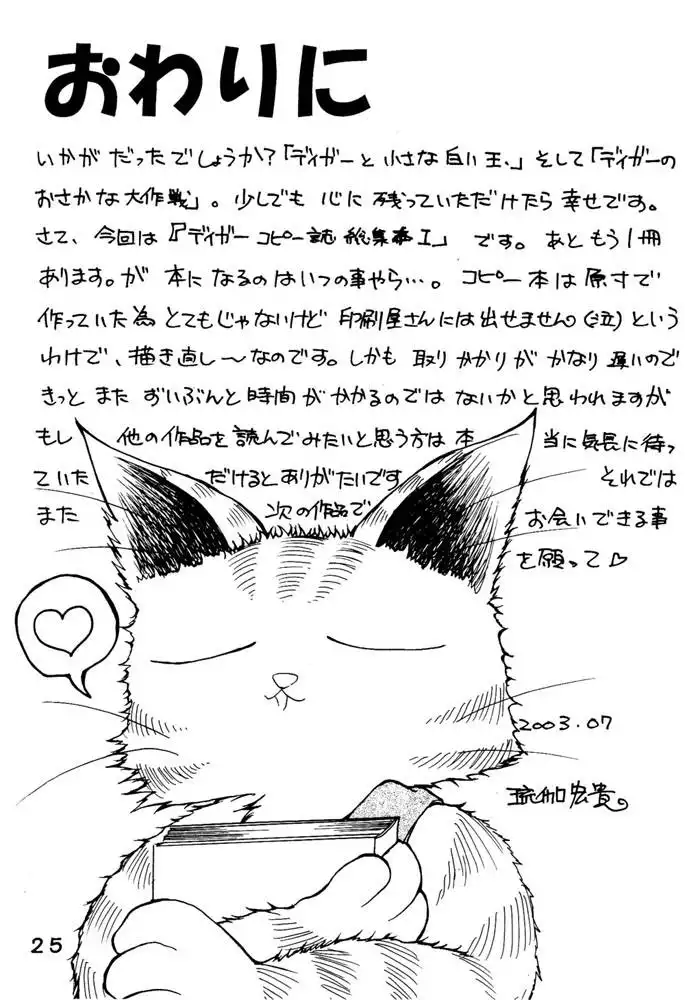 おわりに
いかが だったでしょうか?「ディガーと 小さな 白い 玉、」そして「ディガーの
おさかな 大作戦」。少しでも 心に 残っていただけたら 幸せです。
さて、今回は『ディガー コピー誌 総集本 I』です。あともう1冊
あります。が 本になるのはいつの事やら…。コピー本は原寸で
作っていた為 とてもじゃないけど 印刷屋さんには出せません(泣)という
わけで、描き直し〜なのです。しかも 取りかかりが かなり 遅いので
きっと また ずいぶんと 時間がかかるのでは ないかと思われますが
もし 他の作品を読んでみたいと思う方は 本 当に気長に待っ
ていた だけるとありがたいです それでは
また 次の作品で お会いできる事
を願って♡
2003.07
宏貴。
25